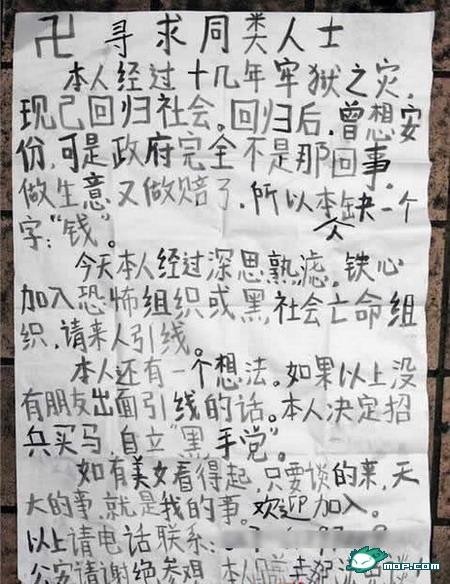 卍 寻求同类人士
本人经过十几年牢狱之灾,
现已回归社会。回归后,曾想安
份,可是政府完全不是那回事。
做生意又做赔了,所以本人缺一个
字:“钱”。
今天本人经过深思熟虑,铁心
加入恐怖组织或黑社会亡命组
织,请来人引线。
本人还有一个想法。如果以上没
有朋友出面引线的话。本人决定招
兵买马,自立“黑手党”。
如有美女看得起,只要谈的来,天
大的事,就是我的事。欢迎加入。
以上请电话联系:
公安请谢绝参观,本人
MOP.COM